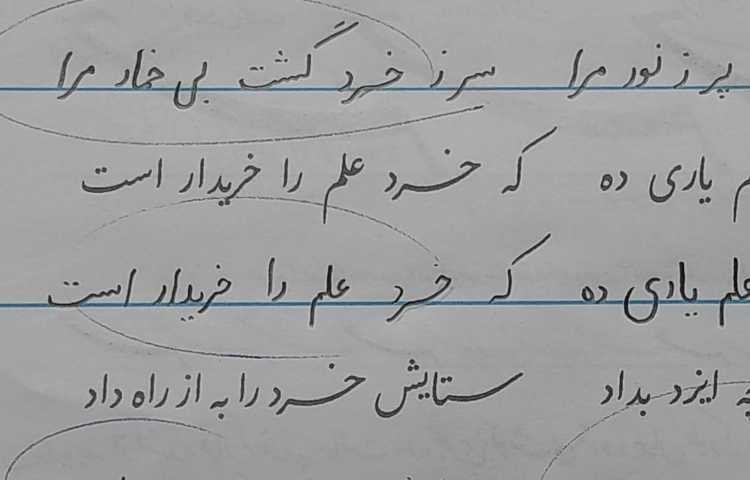 پر ز نور مرا سر ز خرد گشت بی خمار مرا
یاری ده که خرد علم را خریدار است
علم یاری ده که خرد علم را خریدار است
ایزد بداد ستایش خرد را به از راه داد